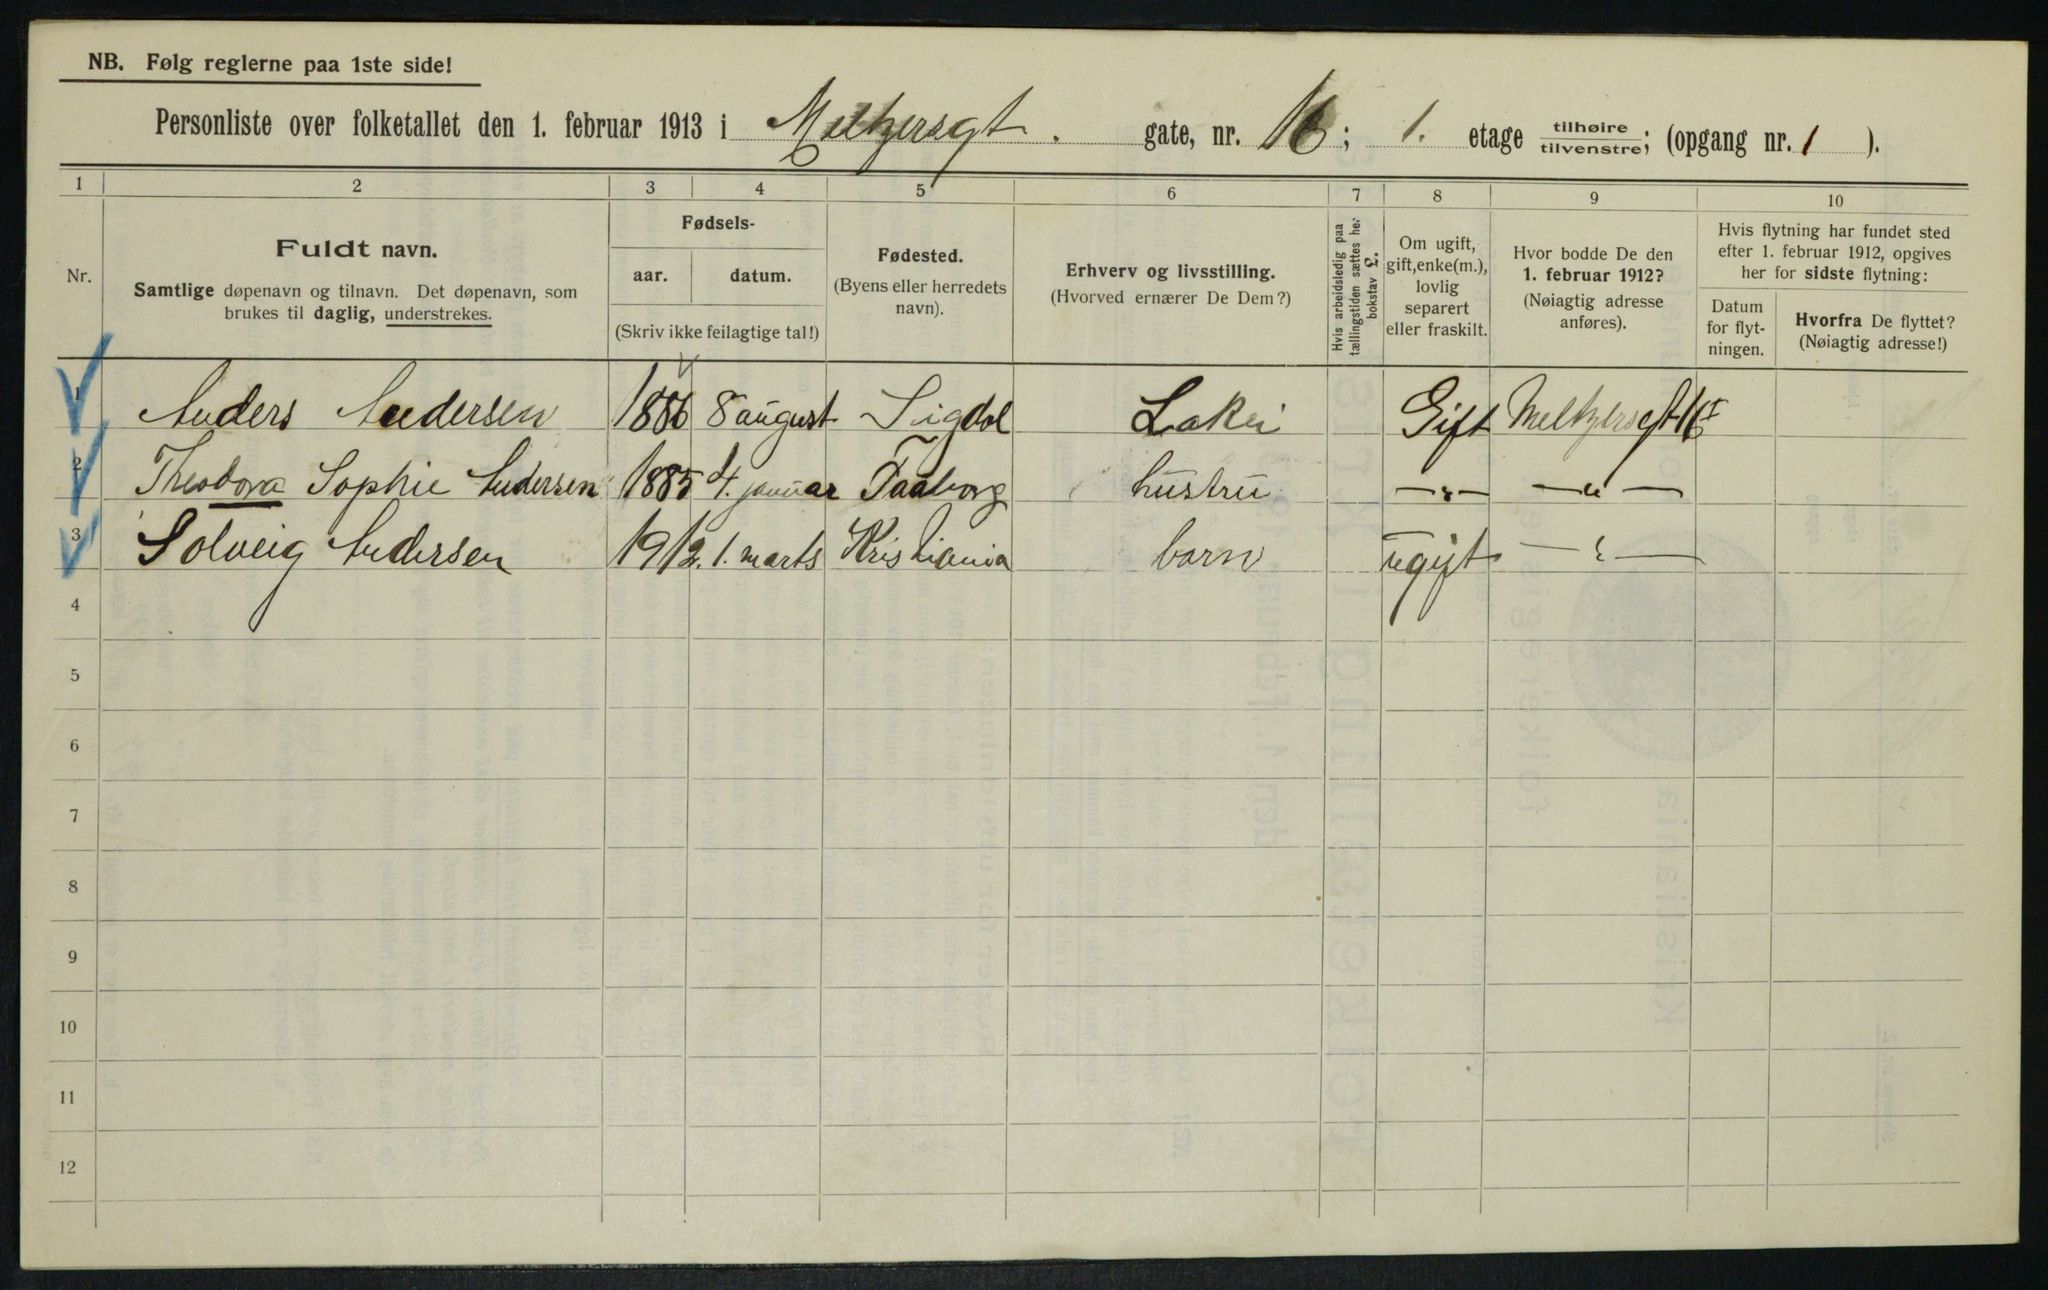 NB. Følg reglerne paa 1ste side!
Personliste over folketallet den 1. februar 1913 i Meltzersgt. gate, nr. 16; 1. etage tilhøire tilvenstre; (opgang nr. 1 ).
1 2 3 4 5 6 7 8 9 10
Nr.
Fuldt navn.
Samtlige døpenavn og tilnavn. Det døpenavn, som
brukes til daglig, understrekes.
Fødsels-
aar. datum.
(Skriv ikke feilagtige tal!)
Fødested.
(Byens eller herredets
navn).
Erhverv og livsstilling.
(Hvorved ernærer De Dem?)
Hvis arbeidsledig paa
tællingstiden sættes her
bokstav L.
Om ugift,
gift, enke(m.),
lovlig
separert
eller fraskilt.
Hvor bodde De den
1. februar 1912?
(Nøiagtig adresse
anføres).
Hvis flytning har fundet sted
efter 1. februar 1912, opgives
her for sidste flytning:
Datum
for flyt-
ningen.
Hvorfra De flyttet?
(Nøiagtig adresse!)
1 Anders Andersen 1886 8 august Sigdal Lakei Gift Meltzersgt 16 I
2 Theodora Sophie Andersen 1885 4. januar Faaborg hustru —„— —„—
3 Solveig Andersen 1912. 1. marts Kristiania barn ugift —„—
4
5
6
7
8
9
10
11
12